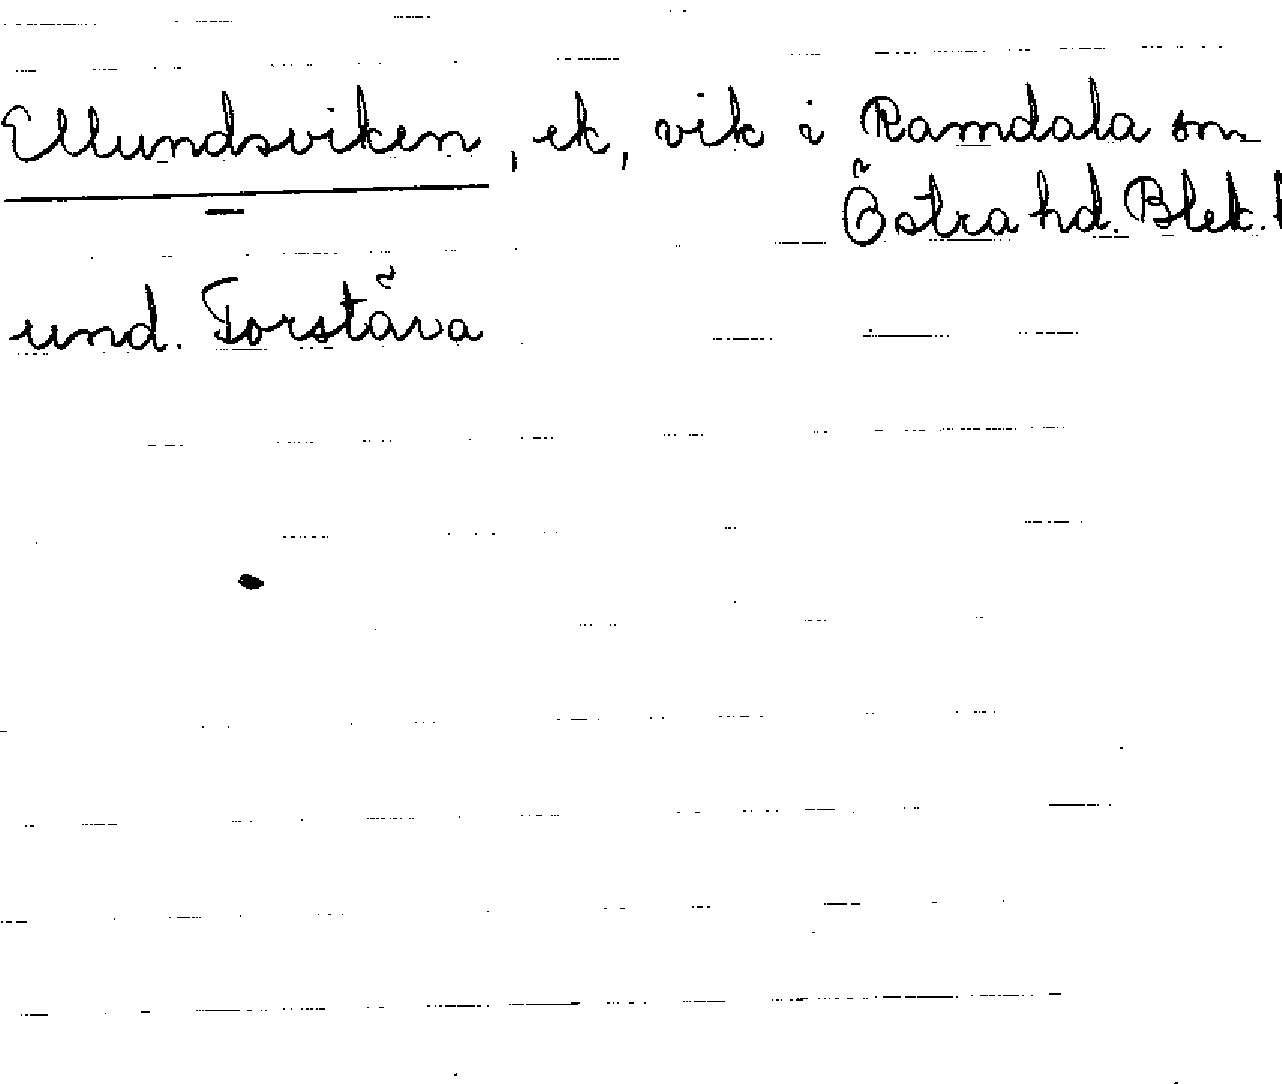 Ellundsviken, ek, vik i Ramdala sn.
Östra hd. Blek. l
und. Torstäva